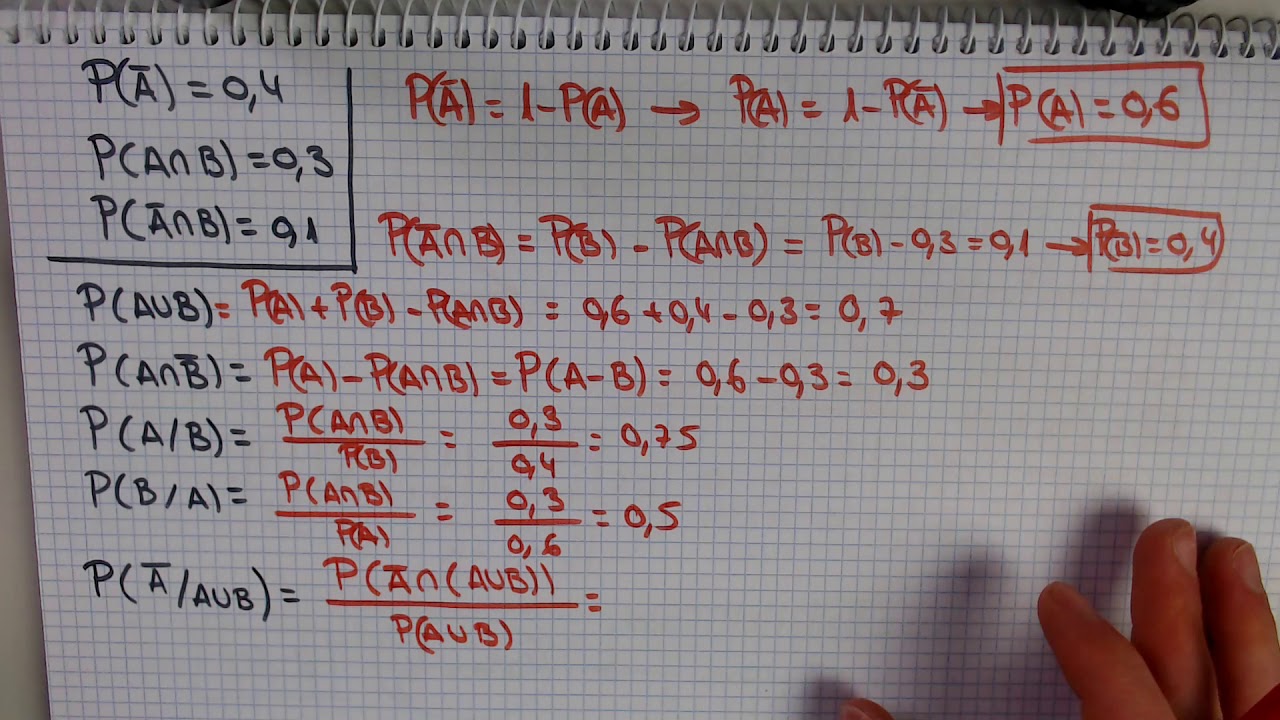 P(A̅) = 0,4
P(A̅) = 1 - P(A) → P(A) = 1 - P(A̅) → P(A) = 0,6
P(A∩B) = 0,3
P(A̅∩B) = 0,1
P(A̅∩B) = P(B) - P(A∩B) = P(B) - 0,3 = 0,1 → P(B) = 0,4
P(A∪B) = P(A) + P(B) - P(A∩B) = 0,6 + 0,4 - 0,3 = 0,7
P(A∩B̅) = P(A) - P(A∩B) = P(A-B) = 0,6 - 0,3 = 0,3
P(A/B) = P(A∩B) / P(B) = 0,3 / 0,4 = 0,75
P(B/A) = P(A∩B) / P(A) = 0,3 / 0,6 = 0,5
P(A̅/A∪B) = P(A̅∩(A∪B)) / P(A∪B) =